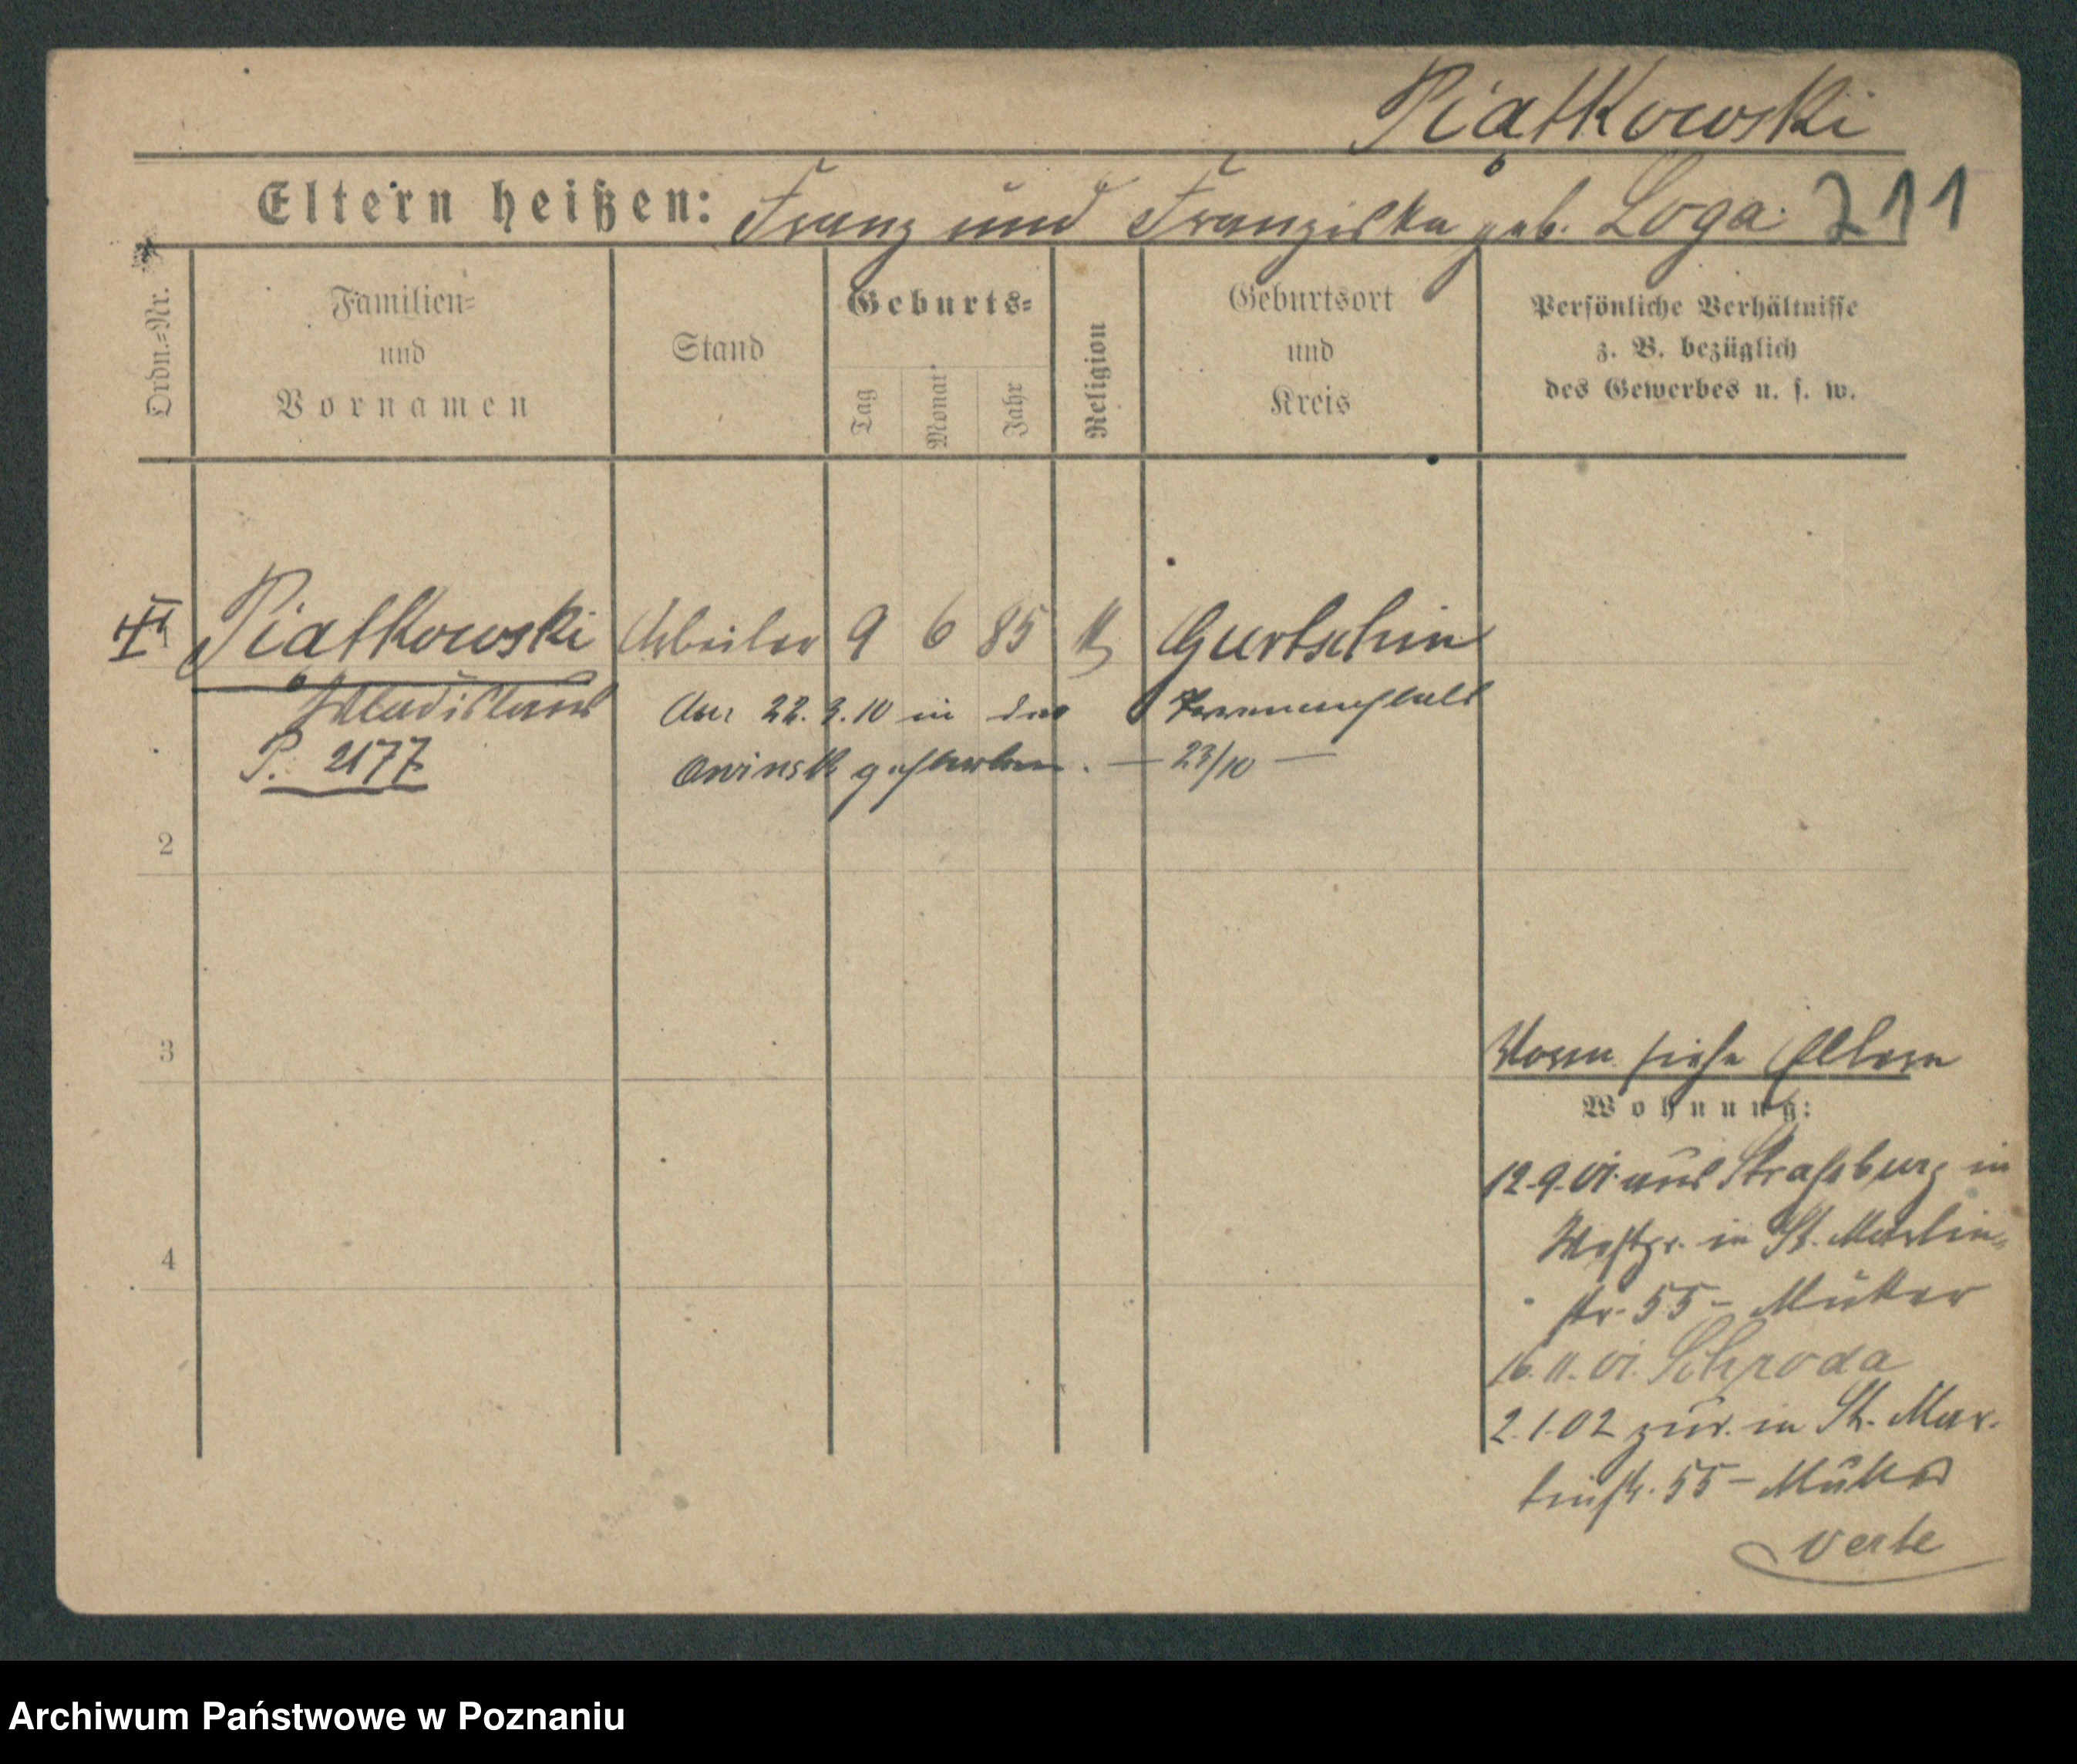 Piatkowski
Eltern heißen: Franz und Franziska geb. Loga. 211
Ordn.=Nr.
Familien=
und
Vornamen
Stand
Geburts=
Tag
Monat
Jahr
Religion
Geburtsort
und
Kreis
Persönliche Verhältnisse
z. B. bezüglich
des Gewerbes u. s. w.
Piatkowski Arbeiter 9 6 85 K Gurtschin
Wladislaus
Am 22.3.10 in der Irrenanstalt
P. 2177
Owinsk gestorben. — 23/10 —
2
3
4
Vorn siehe Eltern
Wohnung:
12.9.01. aus Strassburg in
Westpr. in St. Martin=
str. 55 – Mutter
16.11.01. Schroda
2.1.02 zur. in St. Mar-
tinstr. 55 – Mutter
verte
Archiwum Państwowe w Poznaniu